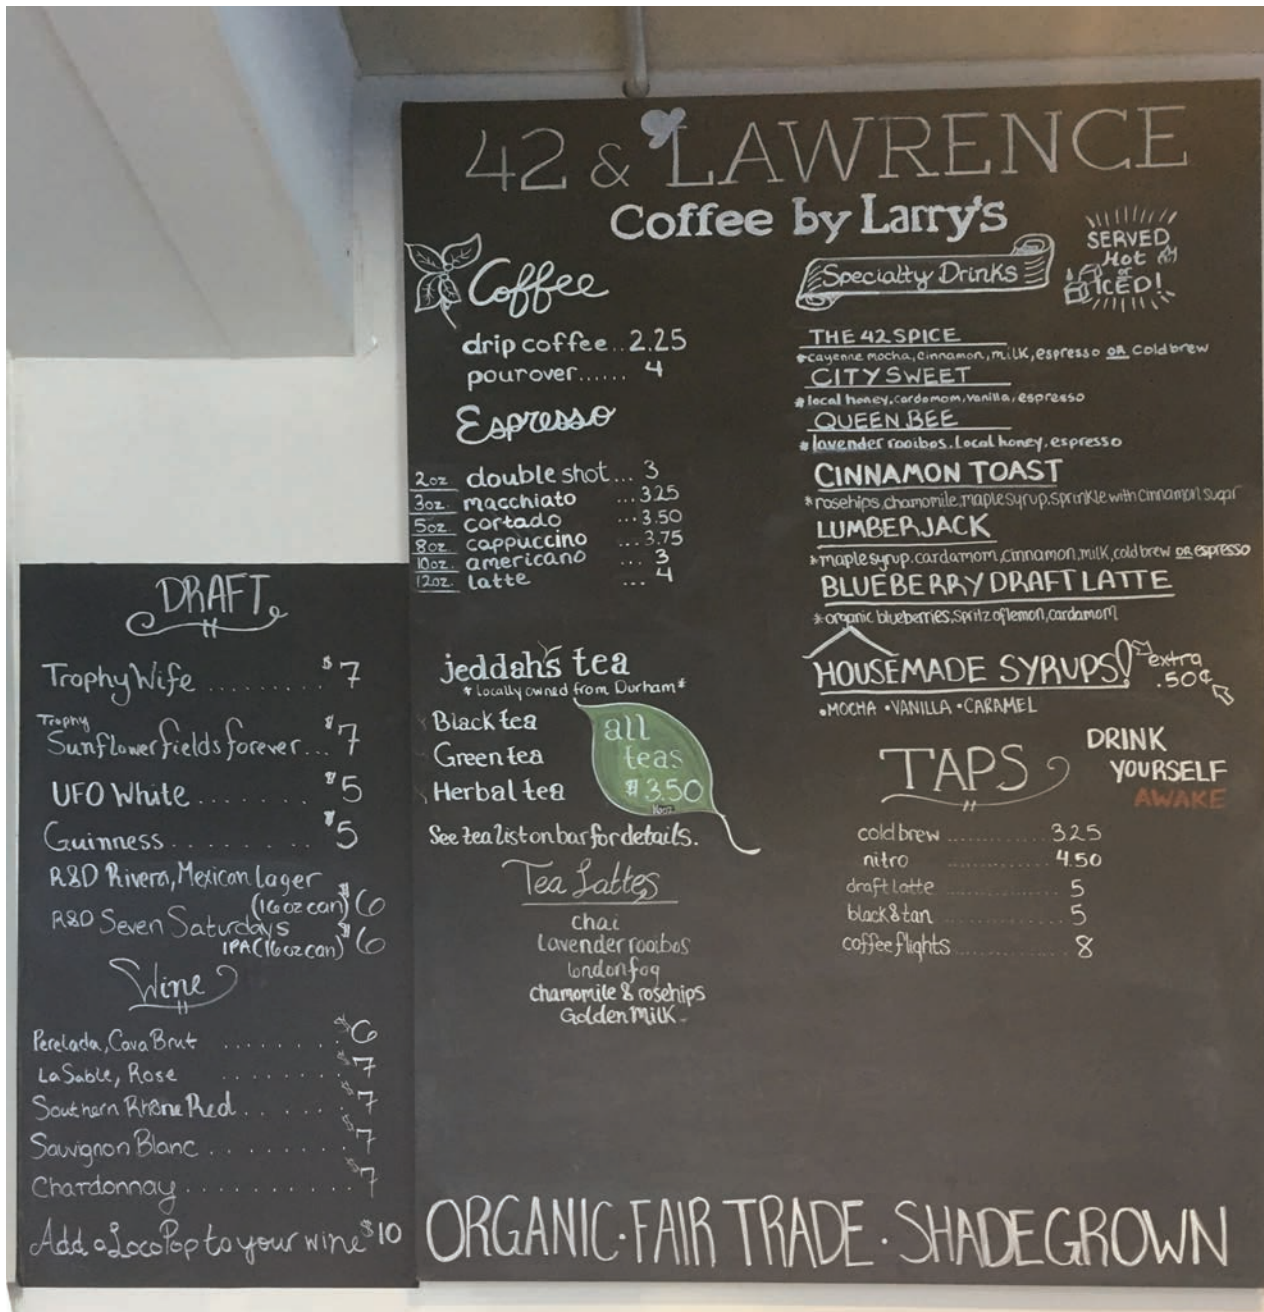 42 & LAWRENCE
Coffee by Larry's
Coffee
drip coffee..2.25
pourover...... 4
Espresso
2oz. double shot... 3
3oz. macchiato ...3.25
5oz. cortado ...3.50
8oz. cappuccino ...3.75
10oz. americano ... 3
12oz. latte ... 4
jeddah's tea
*Locally owned from Durham*
Black tea
Green tea
Herbal tea
all
teas
$3.50
16oz
See tea list on bar for details.
Tea Lattes
chai
lavender rooibos
london fog
chamomile & rosehips
Golden Milk
Specialty Drinks
SERVED
Hot
or
ICED!
THE 42 SPICE
*cayenne mocha, cinnamon, milk, espresso OR Cold brew
CITY SWEET
*local honey, cardamom, vanilla, espresso
QUEEN BEE
*lavender rooibos, Local honey, espresso
CINNAMON TOAST
*rosehips, chamomile, maple syrup, sprinkle with cinnamon sugar
LUMBERJACK
*maple syrup, cardamom, cinnamon, milk, cold brew OR espresso
BLUEBERRY DRAFT LATTE
*organic blueberries, spritz of lemon, cardamom
HOUSEMADE SYRUPS!
extra
.50¢
•MOCHA •VANILLA •CARAMEL
TAPS
DRINK
YOURSELF
AWAKE
cold brew .............. 3.25
nitro .............. 4.50
draft latte .............. 5
black & tan .............. 5
coffee flights .............. 8
DRAFT
Trophy Wife ......... $7
Trophy
Sunflower fields forever... $7
UFO White........ $5
Guinness......... $5
R&D Rivera, Mexican Lager
(16 oz can) $6
R&D Seven Saturdays
IPA (16 oz can) $6
Wine
Perelada, Cava Brut ........ $6
La Sable, Rose ........ $7
Southern Rhône Red....... $7
Sauvignon Blanc ........ $7
Chardonnay.......... $7
Add a LocoPop to your wine $10
ORGANIC · FAIR TRADE · SHADEGROWN